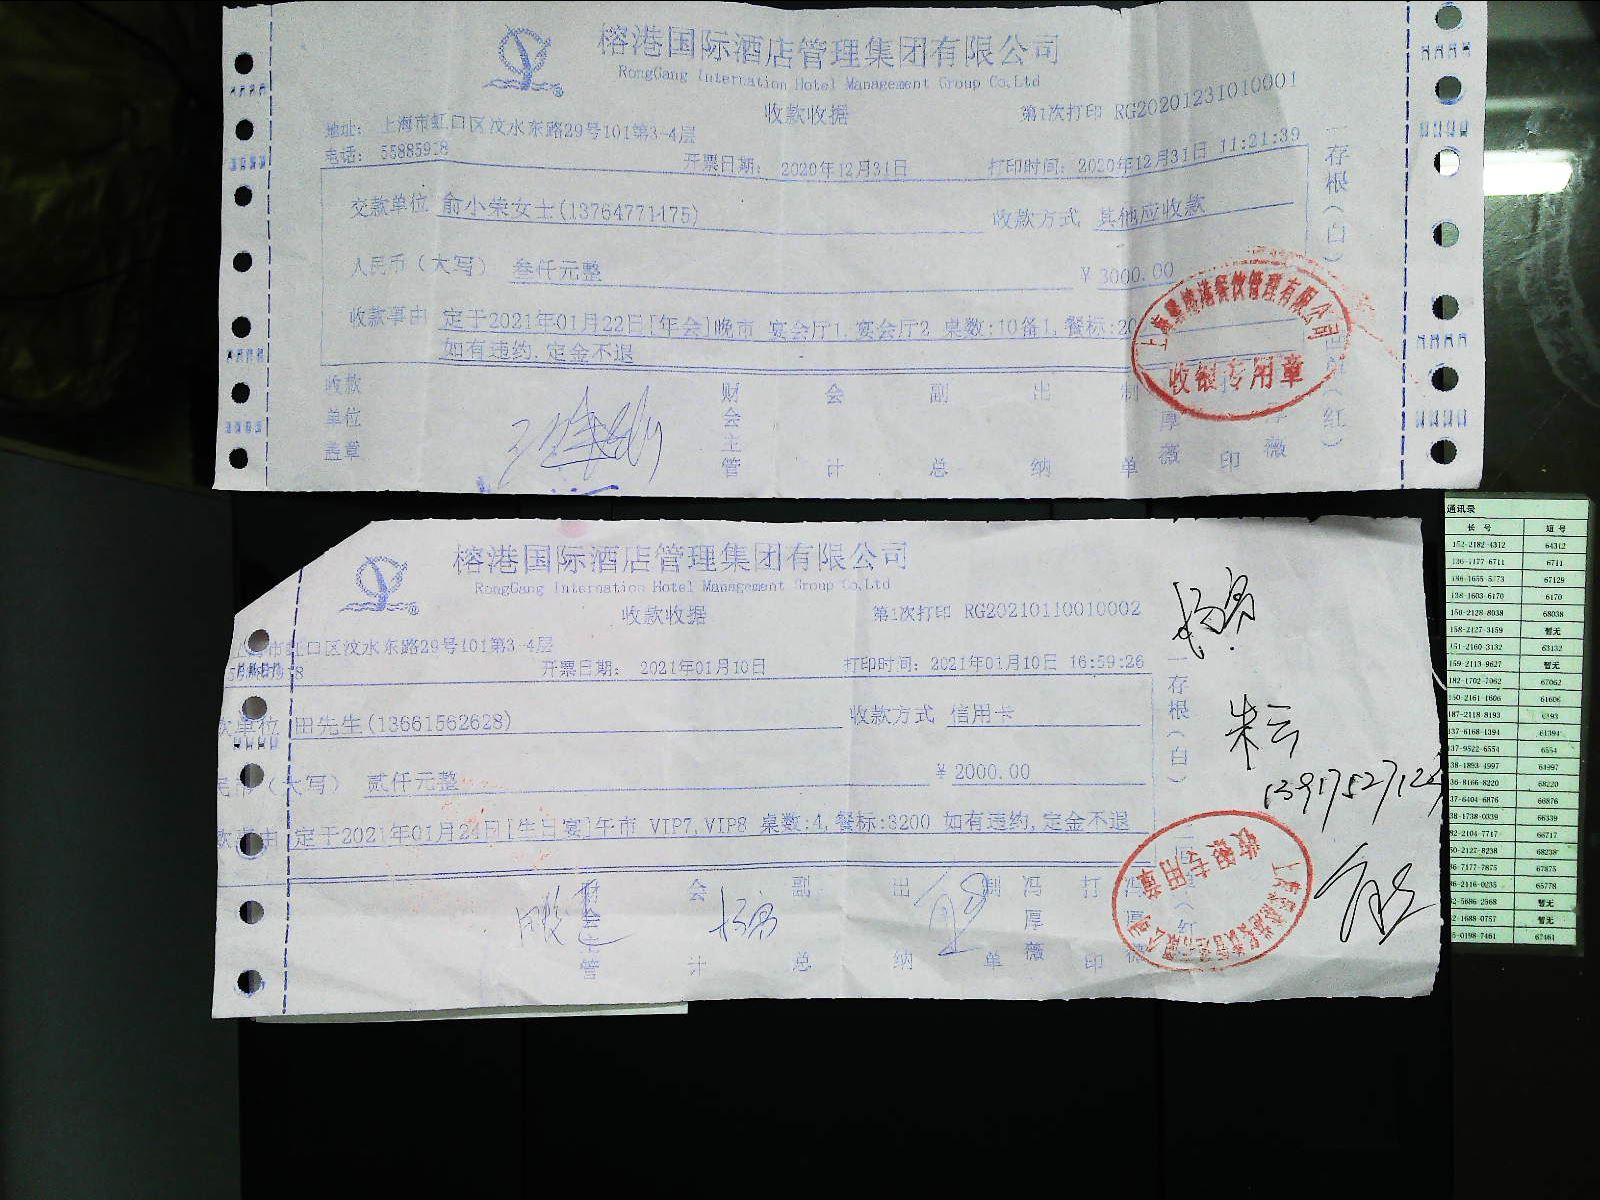 榕港国际酒店管理集团有限公司
RongGang Internation Hotel Management Group Co,Ltd
收款收据
第1次打印 RG20201231010001
地址： 上海市虹口区汶水东路29号101第3-4层
电话： 55885918
开票日期： 2020年12月31日
打印时间：2020年12月31日 11:21:39
交款单位 俞小荣女士(13764771175)
收款方式 其他应收款
人民币（大写） 叁仟元整
￥3000.00
收款事由 定于2021年01月22日[年会]晚市 宴会厅1,宴会厅2 桌数:10备1,餐标:20
如有违约,定金不退
收款单位盖章
财会主管
会计
副总
出纳
制单
厚薇
印
厚薇
一存根（白）
（红）
收银专用章
榕港国际酒店管理集团有限公司
RongGang Internation Hotel Management Group Co,Ltd
收款收据
第1次打印 RG20210110010002
市虹口区汶水东路29号101第3-4层
开票日期： 2021年01月10日
打印时间：2021年01月10日 16:59:26
款单位 田先生(13661562628)
收款方式 信用卡
民币（大写） 贰仟元整
￥2000.00
由 定于2021年01月24日[生日宴]午市 VIP7,VIP8 桌数:4,餐标:3200 如有违约,定金不退
财会主管
会计
副总
出纳
制单
冯厚薇
打印
冯厚薇
一存根（白）
（红）
收银专用章
朱云
通讯录
长 号 短 号
152-2182-4312 64312
136-7177-6711 6711
186-1655-5773 67129
138-1603-6170 6170
150-2128-8038 68038
158-2127-3159 暂无
151-2160-3132 63132
159-2113-9627 暂无
182-1702-7062 67062
150-2161-1606 61606
187-2118-8193 6393
137-6168-1394 61394
137-9522-6554 6554
138-1893-4997 64997
36-8166-8220 68220
37-6404-6876 66876
38-1738-0339 66339
82-2104-7717 66717
50-2127-8238 68238
6-7177-7875 67875
6-2116-0235 65778
2-5686-2568 暂无
2-1688-0757 暂无
5-0198-7461 67461